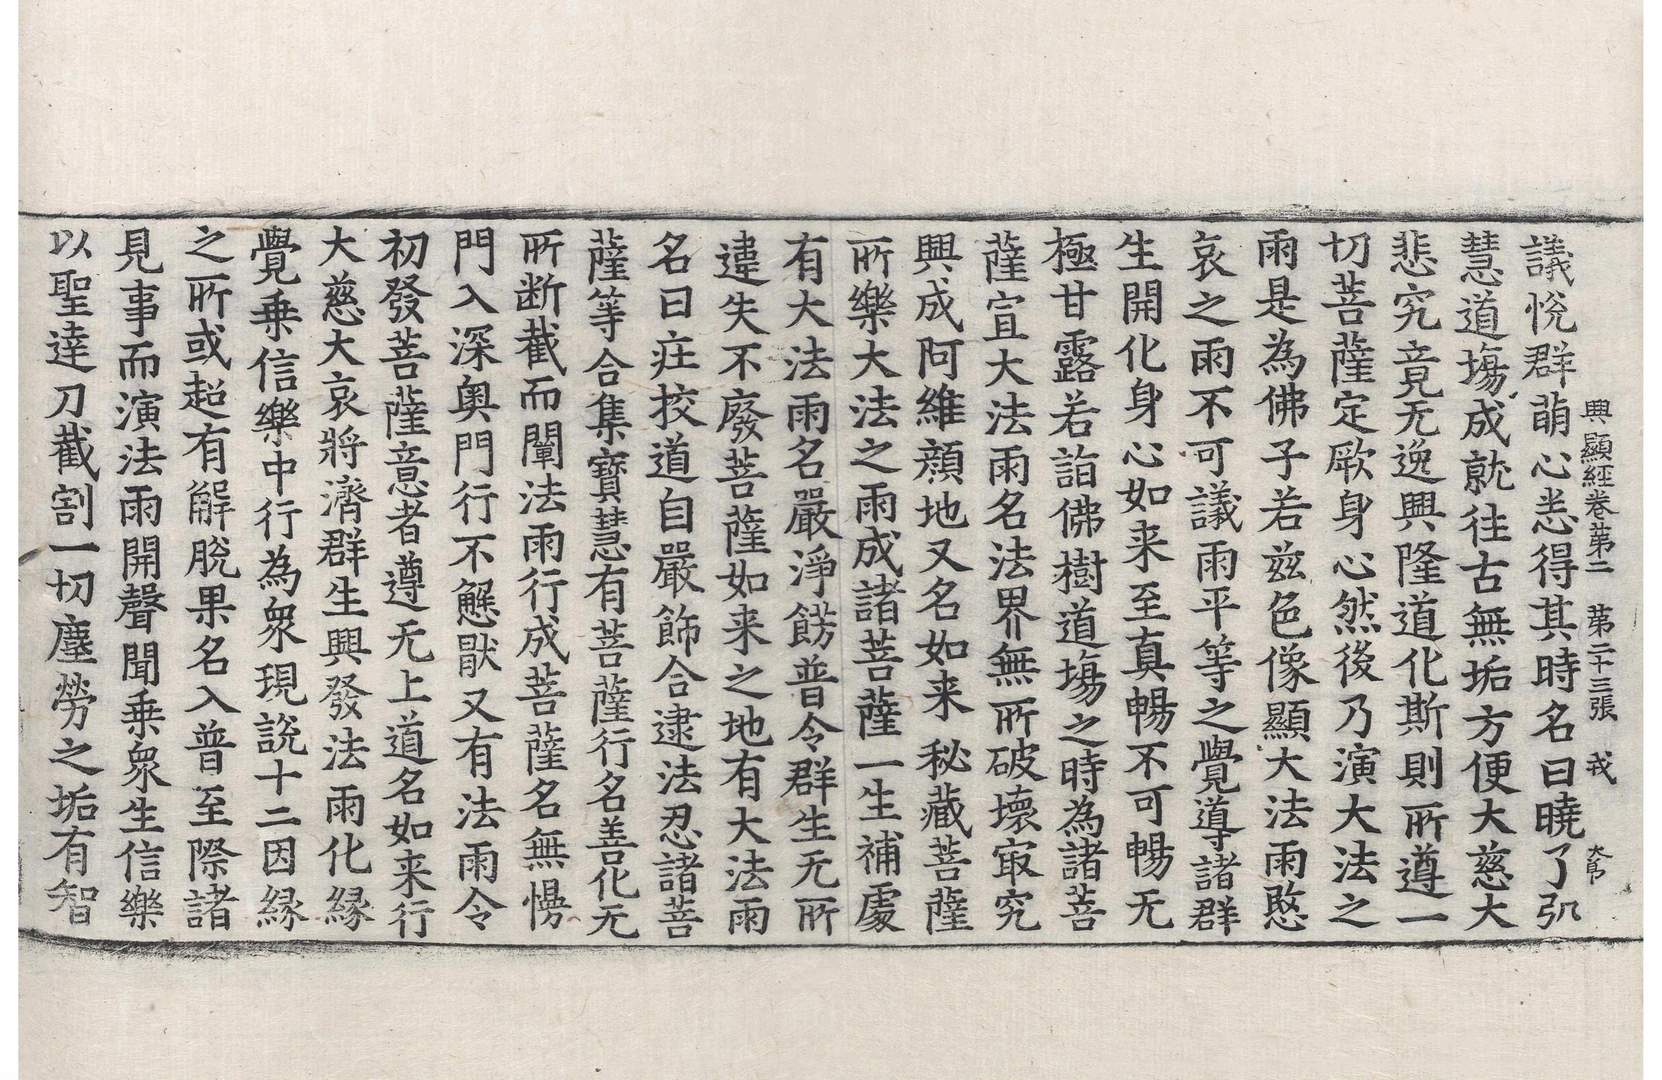 興顯經卷第二　第二十三張　我
議悅群萌心恙得其時名曰曉了弘
慧道塲成就往古無垢方便大慈大
悲究竟无逸興隆道化斯則所遵一
切菩薩定厭身心然後乃演大法之
雨是為佛子若兹色像顯大法雨愍
哀之雨不可議雨平等之覺導諸群
生開化身心如来至真暢不可暢无
極甘露若詣佛樹道塲之時為諸菩
薩宣大法雨名法界無所破壞㝡究
興成阿維顔地又名如来秘藏菩薩
所樂大法之雨成諸菩薩一生補處
有大法雨名嚴淨餝普令群生无所
違失不廢菩薩如来之地有大法雨
名曰庄挍道自嚴飾合逮法忍諸菩
薩等合集寶慧有菩薩行名善化无
所断截而闡法雨行成菩薩名無慢
門入深奥門行不懈猒又有法雨令
初發菩薩意者遵无上道名如来行
大慈大哀將濟群生興發法雨化縁
覺乗信樂中行為衆現說十二因縁
之所或超有解脫果名入普至際諸
見事而演法雨開聲聞乗衆生信樂
以聖達刀截割一切塵勞之垢有智